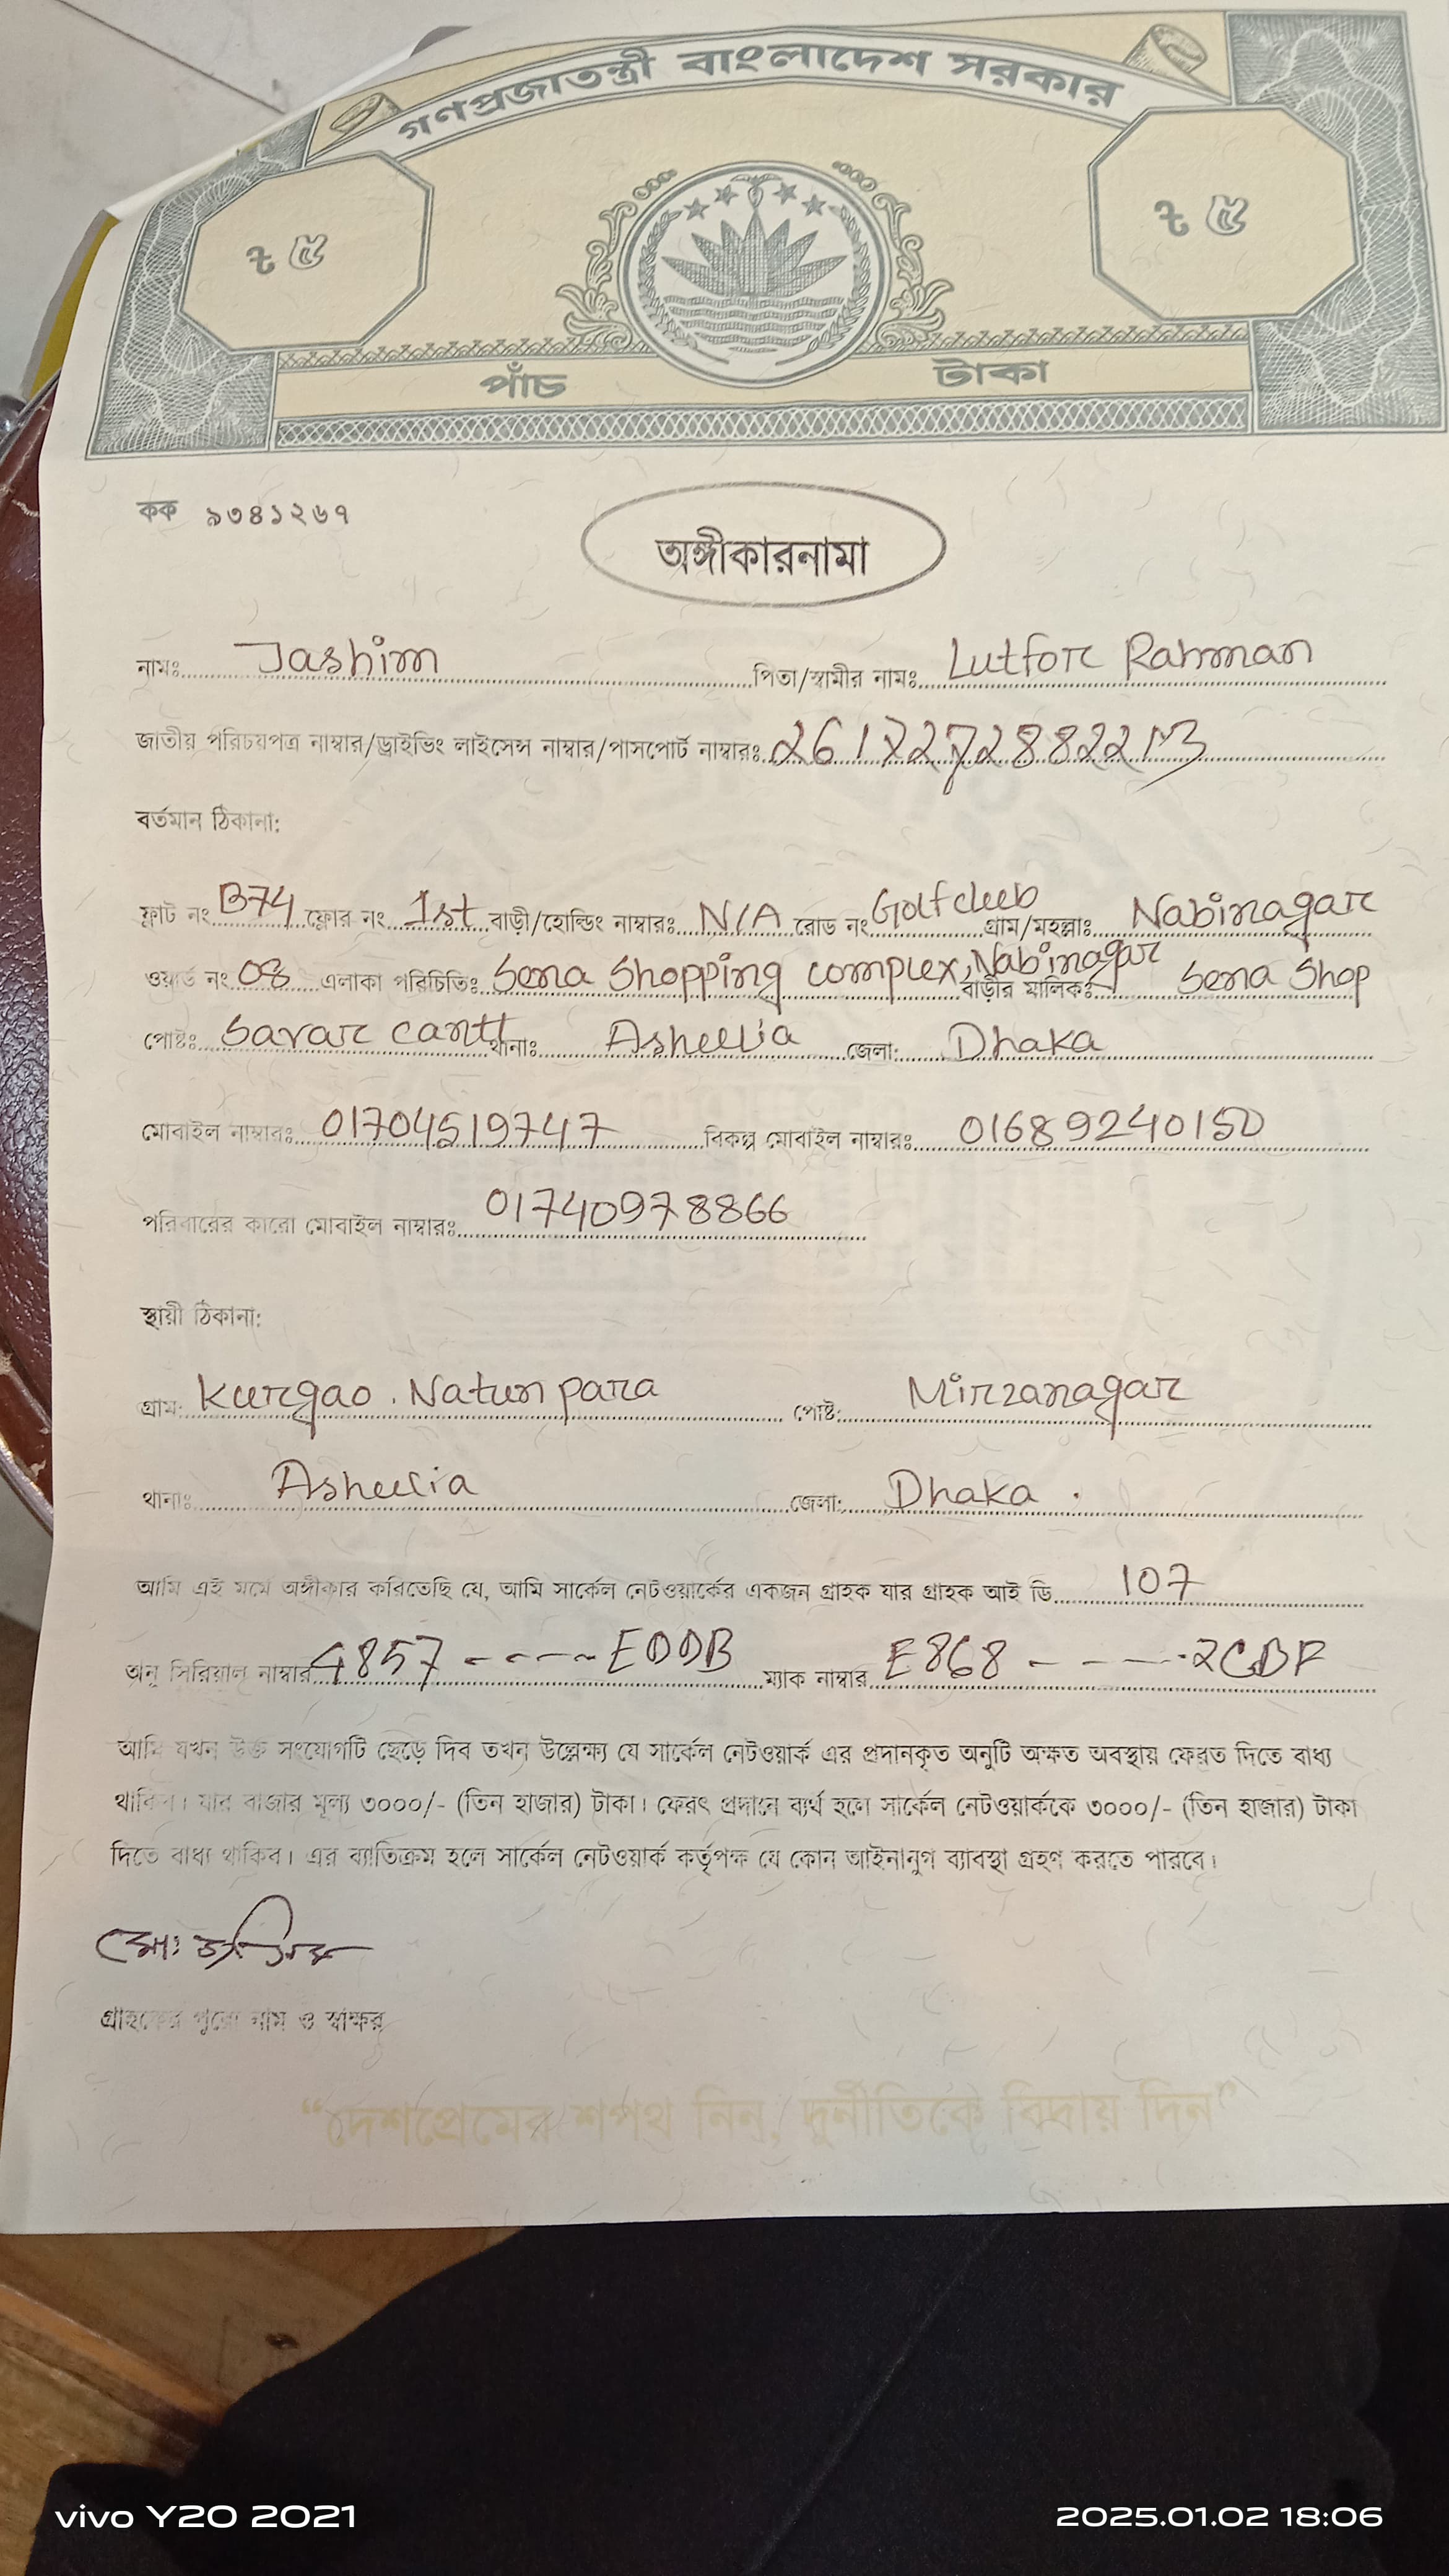 গণপ্রজাতন্ত্রী বাংলাদেশ সরকার
৳ ৫ ৳ ৫
পাঁচ টাকা
কক ৯৩৪১২৬৭
অঙ্গীকারনামা
নামঃ Jashim পিতা/স্বামীর নামঃ Lutfor Rahman
জাতীয় পরিচয়পত্র নাম্বার/ড্রাইভিং লাইসেন্স নাম্বার/পাসপোর্ট নাম্বারঃ
বর্তমান ঠিকানা:
ফ্লাট নং B74 ফ্লোর নং 1st বাড়ী/হোল্ডিং নাম্বারঃ N/A রোড নং Golf club গ্রাম/মহল্লাঃ Nabinagar
ওয়ার্ড নং 08 এলাকা পরিচিতিঃ Sena Shopping complex, Nabinagar বাড়ীর মালিকঃ Sena Shop
পোষ্টঃ Savar cantt থানাঃ Ashulia জেলা: Dhaka
মোবাইল নাম্বারঃ 01704519747 বিকল্প মোবাইল নাম্বারঃ 01689240150
পরিবারের কারো মোবাইল নাম্বারঃ 01740978866
স্থায়ী ঠিকানা:
গ্রাম: Kurgao. Natun para পোষ্ট: Mirzanagar
থানাঃ Ashulia জেলা: Dhaka.
আমি এই মর্মে অঙ্গীকার করিতেছি যে, আমি সার্কেল নেটওয়ার্কের একজন গ্রাহক যার গ্রাহক আই ডি 107
অনু সিরিয়াল নাম্বার 4857 ---- E00B ম্যাক নাম্বার E868 ---- 2CBF
আমি যখন উক্ত সংযোগটি ছেড়ে দিব তখন উল্লেক্ষ্য যে সার্কেল নেটওয়ার্ক এর প্রদানকৃত অনুটি অক্ষত অবস্থায় ফেরত দিতে বাধ্য
থাকিব। যার বাজার মূল্য ৩০০০/- (তিন হাজার) টাকা। ফেরৎ প্রদানে ব্যর্থ হলে সার্কেল নেটওয়ার্ককে ৩০০০/- (তিন হাজার) টাকা
দিতে বাধ্য থাকিব। এর ব্যাতিক্রম হলে সার্কেল নেটওয়ার্ক কর্তৃপক্ষ যে কোন আইনানুগ ব্যাবস্থা গ্রহণ করতে পারবে।
মোঃ জসিম
গ্রাহকের পুরো নাম ও স্বাক্ষর
“দেশপ্রেমের শপথ নিন, দুর্নীতিকে বিদায় দিন”
vivo Y20 2021 2025.01.02 18:06